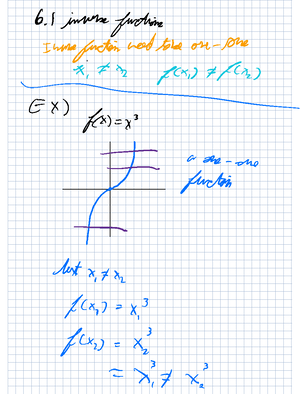 6.1 inverse functions
Inverse function need to be one-one
x₁ ≠ x₂ f(x₁) ≠ f(x₂)
Ex)
f(x) = x³
a one-one
function
let x₁ ≠ x₂
f(x₁) = x₁³
f(x₂) = x₂³
= x₁³ ≠ x₂³